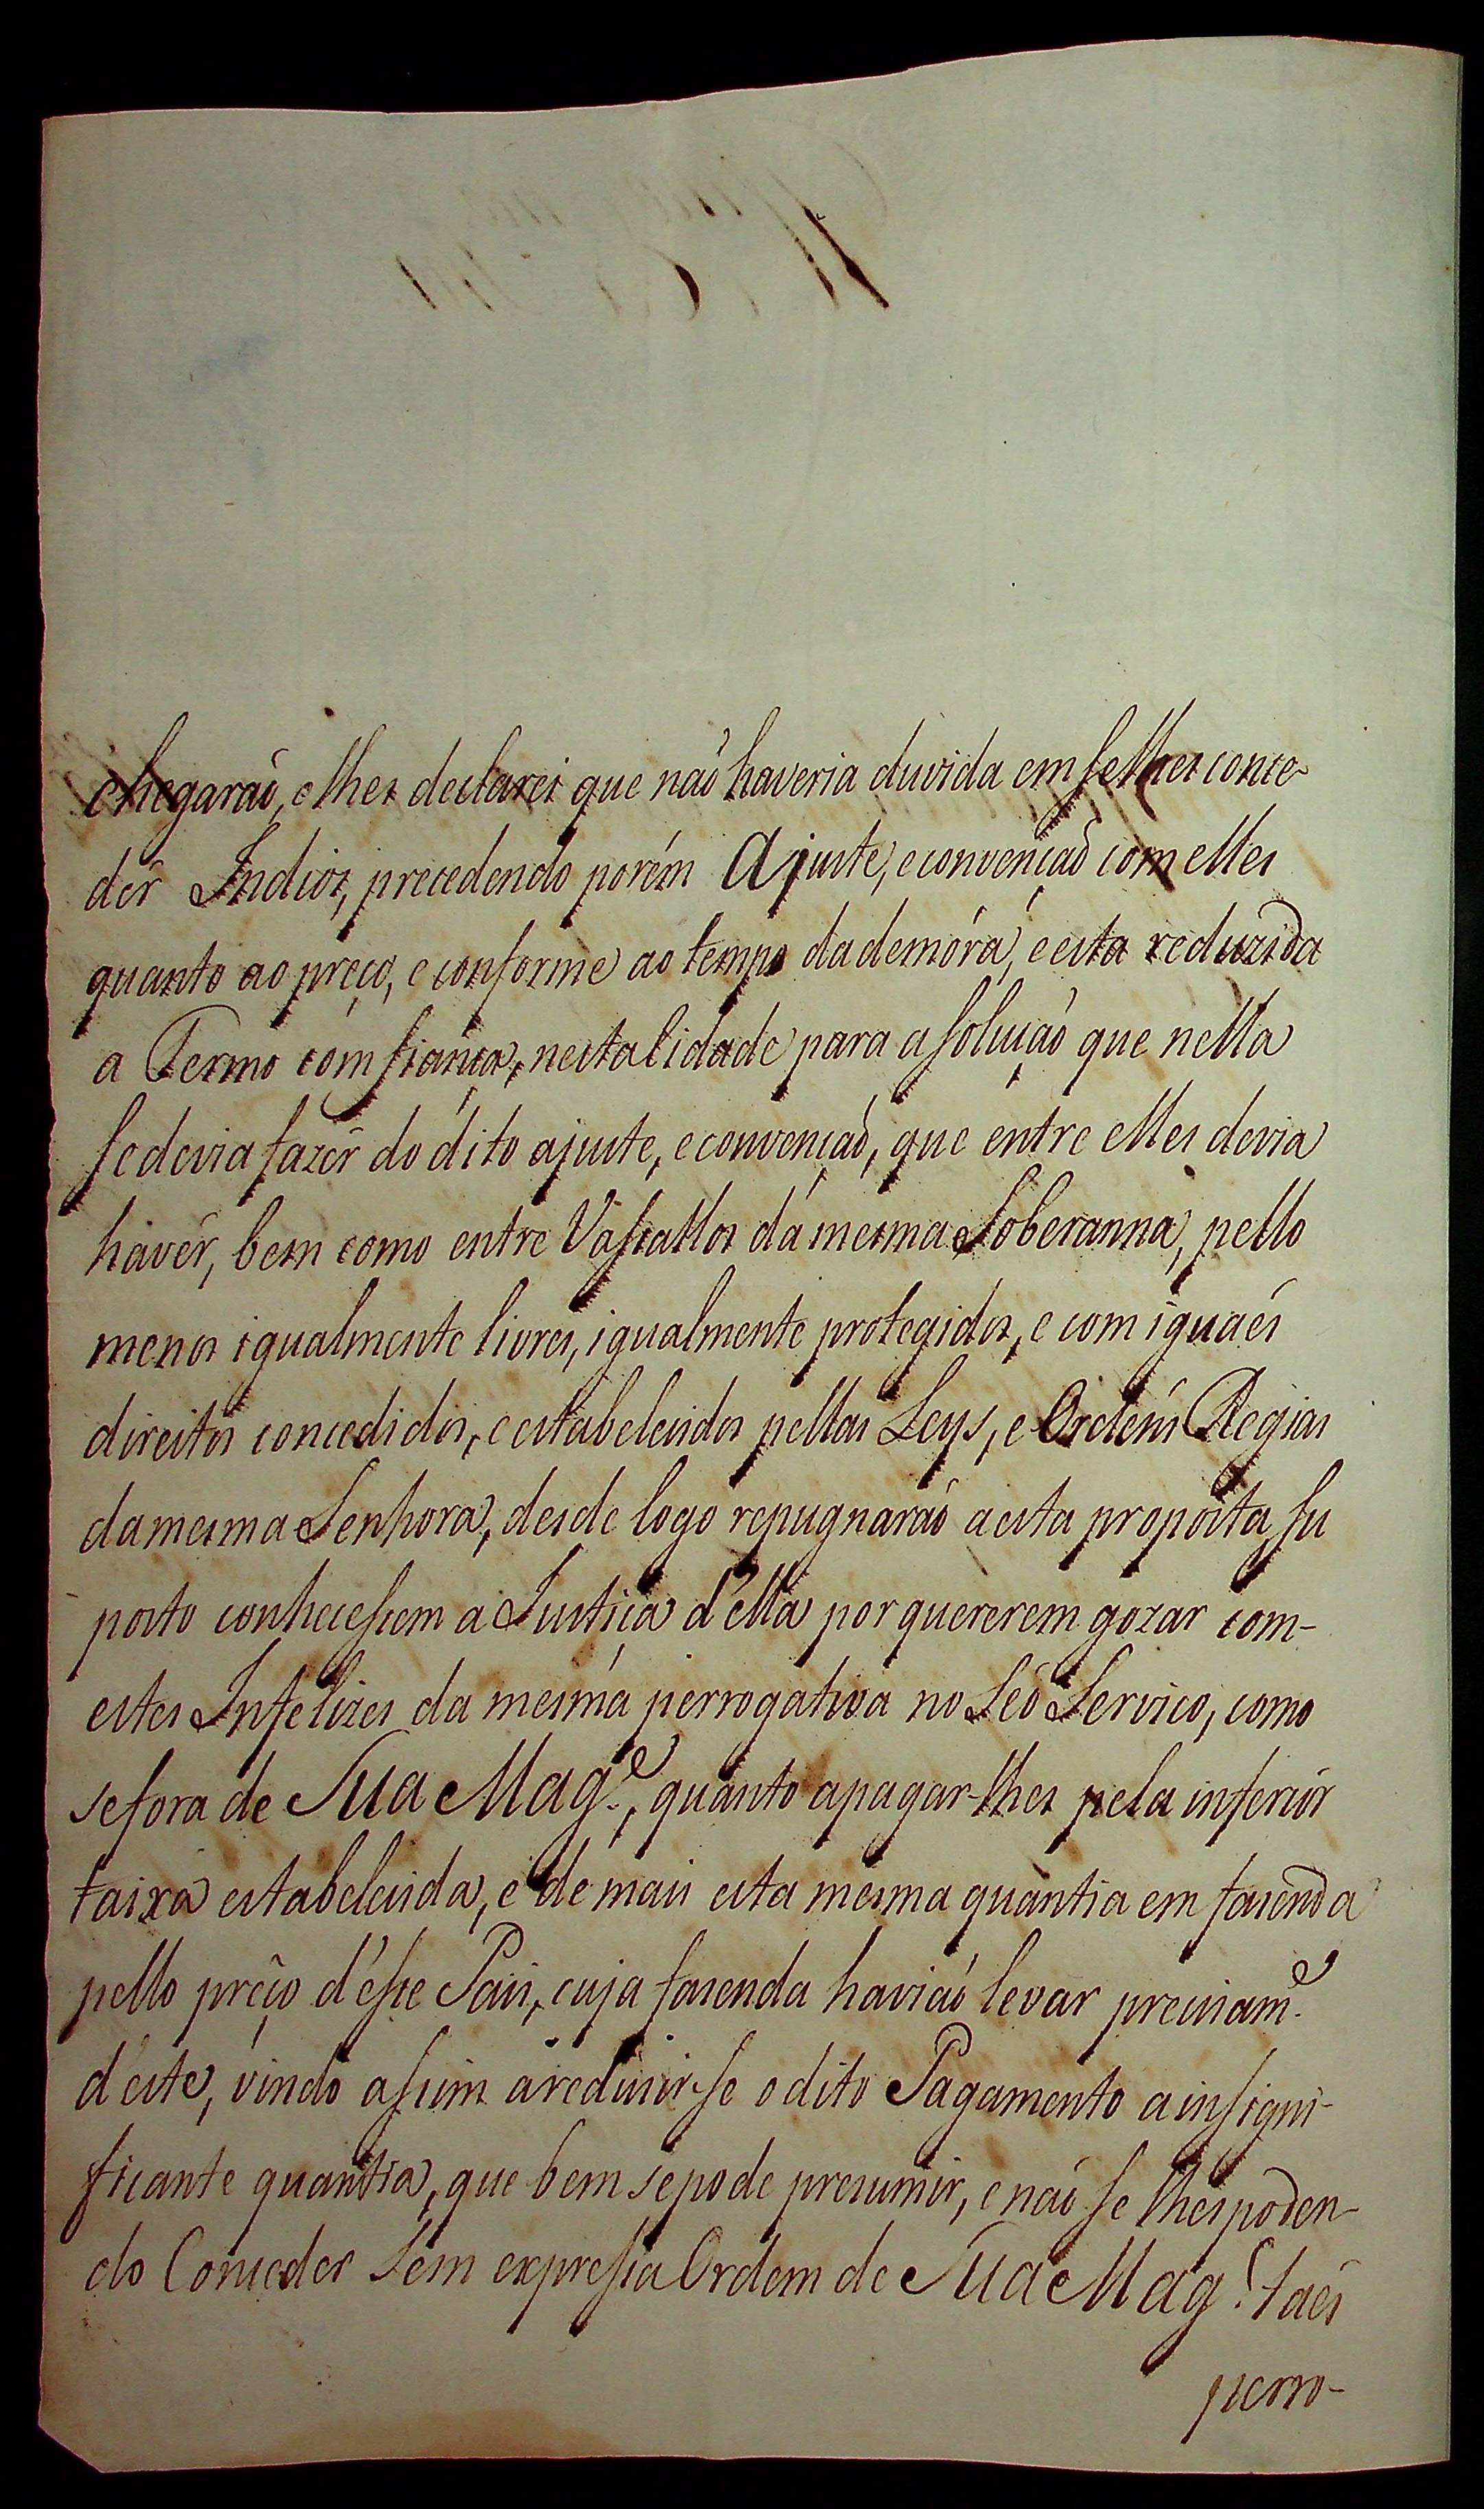 chegaraó, e lhes declarei que naõ haveria duvida em se lhes conce-
dêr Indios, precedendo porém Ajuste, e convençaõ com elles
quanto ao preço, e conforme ao tempo da demóra, e esta reduzida
a Termo com fiança, nesta Cidade para a soluçaõ que nella
se devia fazêr do dito ajuste, e convençaõ, que entre elles devia
havêr, bem como entre Vassallos da mesma Soberanna, pello
menos igualmente livres, igualmente protegidos, e com iguaés
direitos concedidos, e estabelecidos pellas Leys, e Ordéns Regias
da mesma Senhora, desde logo repugnaraó a esta proposta, su
posto conhecessem a Justiça d'ella por quererem gozar com-
estes Infelizes da mesma perrogativa no Seo Serviço, como
se fora de Sua Mag.e, quanto a pagar-lhes pela inferiór
taixa estabelecida, e de mais esta mesma quantia em fasenda
pello preço d'éste Pais, cuja fasenda haviaó levar precisam.e
d'este, vindo assim a redusir-se o dito Pagamento a insigni-
ficante quantia, que bem se pode presumir, e naó se lhes poden-
do Conceder sem expressa Ordem de Sua Mag.e taés
perro-